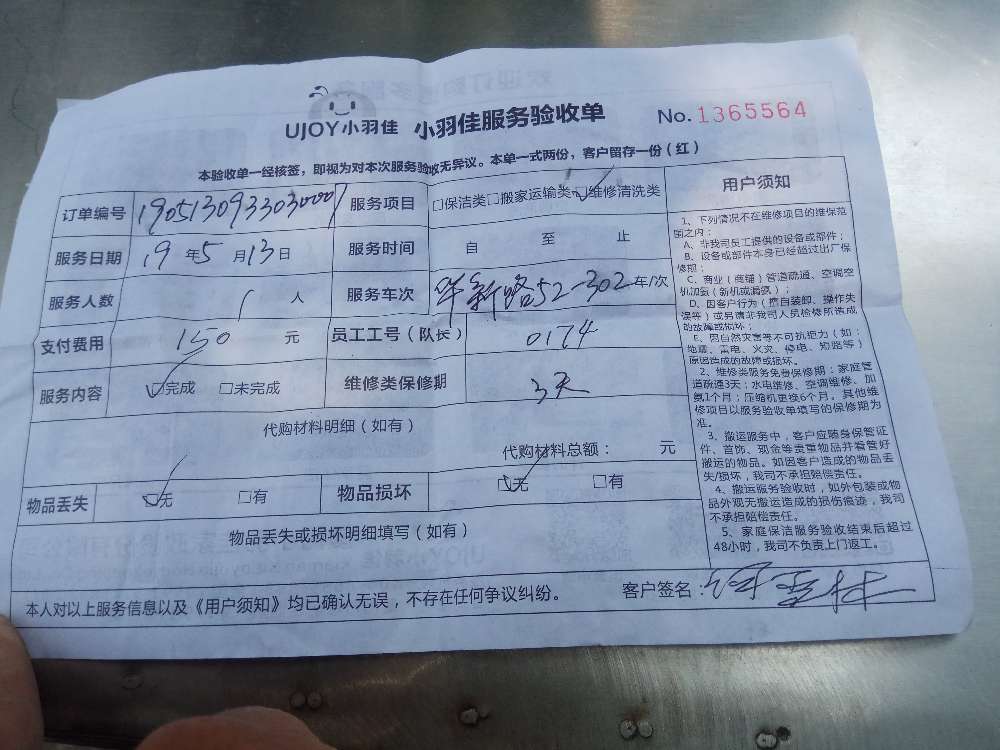 UJOY小羽佳 小羽佳服务验收单 No. 1365564
本验收单一经核签，即视为对本次服务验收无异议。本单一式两份，客户留存一份（红）
订单编号 19051309330300001 服务项目 □保洁类□搬家运输类☑维修清洗类
服务日期 19年5月13日 服务时间 自 至 止
服务人数 1人 服务车次 华新路52-302 车/次
支付费用 150 元 员工工号（队长） 0174
服务内容 ☑完成 □未完成 维修类保修期 3天
代购材料明细（如有）
代购材料总额： 元
物品丢失 ☑无 □有 物品损坏 ☑无 □有
物品丢失或损坏明细填写（如有）
本人对以上服务信息以及《用户须知》均已确认无误，不存在任何争议纠纷。 客户签名：
用户须知
1、下列情况不在维修项目的维保范
围之内：
A、非我司员工提供的设备或部件；
B、设备或部件本身已经超过出厂保
修期；
C、商业（商铺）管道疏通、空调空
机加氨（新机或漏氨）；
D、因客户行为（擅自装卸、操作失
误等）或另请非我司人员检修所造成
的故障或损坏；
E、因自然灾害等不可抗拒力（如：
地震、雷电、火灾、停电、短路等）
原因造成的故障或损坏。
2、维修类服务免费保修期：家庭管
道疏通3天；水电维修、空调维修、加
氨1个月；压缩机更换6个月。其他维
修项目以服务验收单填写的保修期为
准。
3、搬运服务中，客户应随身保管证
件、首饰、现金等贵重物品并看管好
搬运的物品。如因客户造成的物品丢
失/损坏，我司不承担赔偿责任。
4、搬运服务验收时，如外包装或物
品外观无搬运造成的损伤痕迹，我司
不承担赔偿责任。
5、家庭保洁服务验收结束后超过
48小时，我司不负责上门返工。